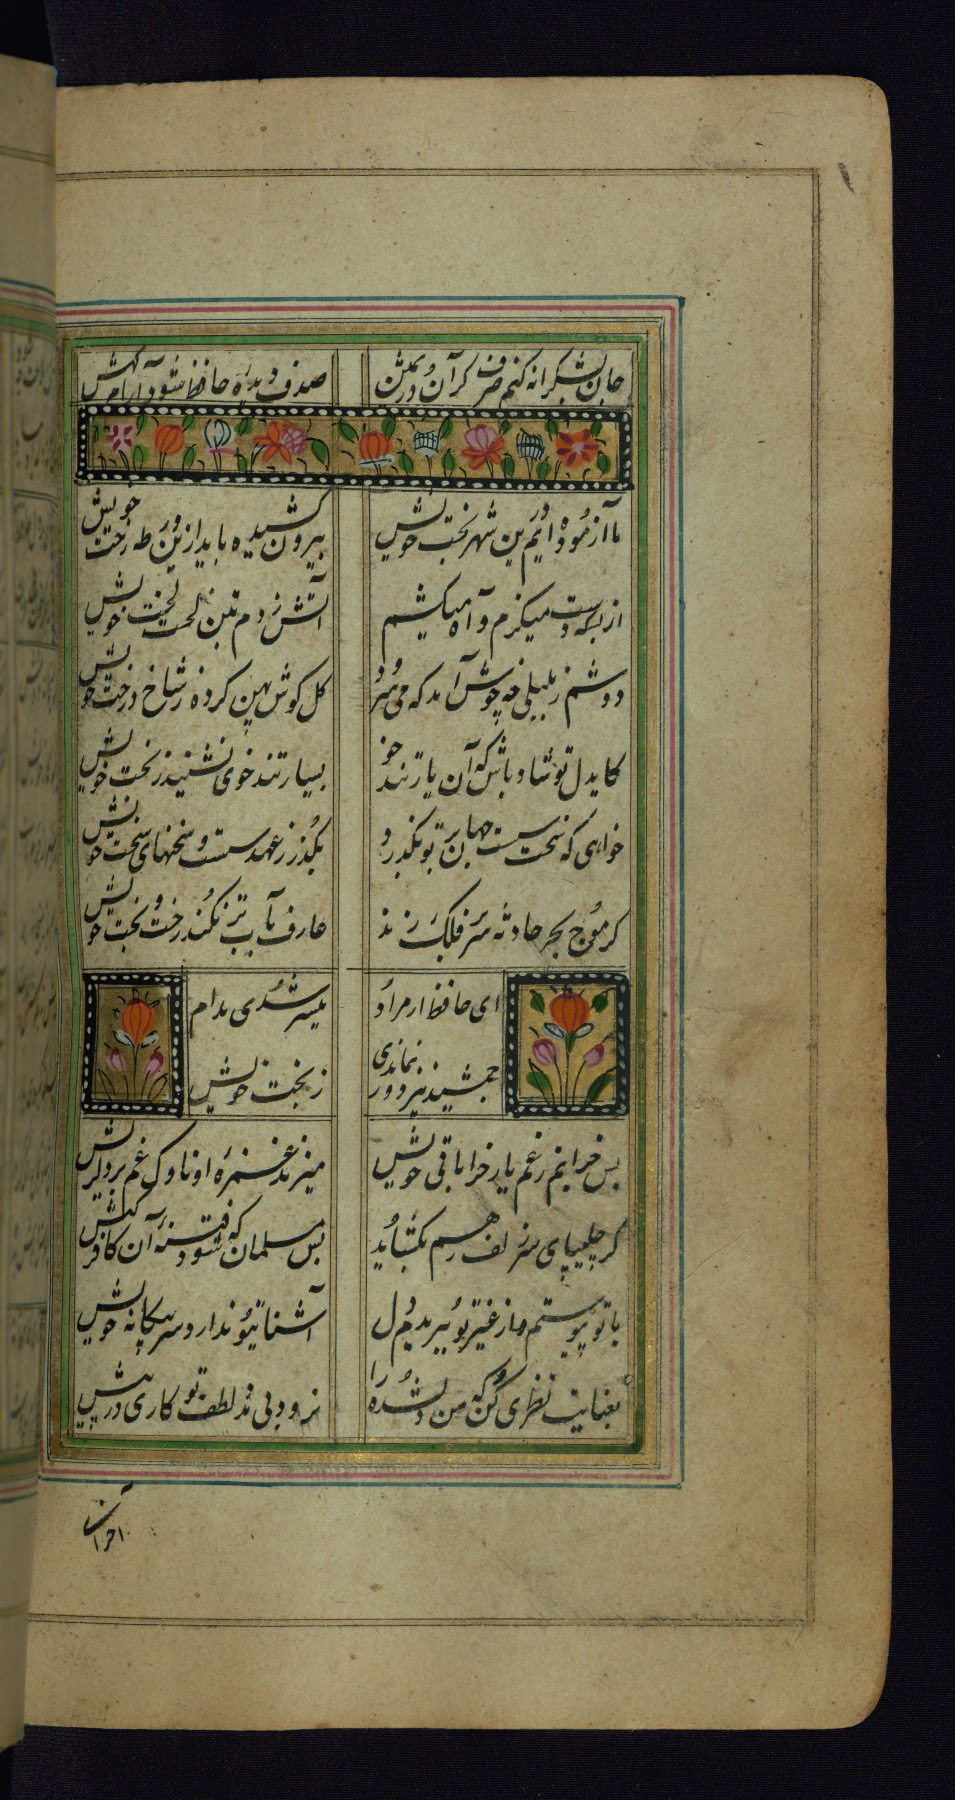 جان بشکرانه کنم صرف کر آن در یمتن
صدف دیدهٔ حافظ شود آرامکهش
ما آزموده‌ایم درین شهر بخت خویش
بیرون کشیده باید ازین ورطه رخت خویش
از بسکه دست میکزم و آه میکشم
آتش زدم بتن لخت لخت خویش
دوشم ز بلبلی چه خوش آمد که می سرود
کل کوش پهن کرده ز شاخ درخت خویش
کایدل تو شاد باش که آن یار تند خو
بسیار تند خوی نشنید ز بخت خویش
خواهی که سخت سست جهان بر تو بکذرد
بکذر ز عهد سست و سخنهای سخت خویش
کر موج بحر حادثه سر فلک زند
عارف بآب تر نکند رخت و بخت خویش
ای حافظ ار مراد
میسر شدی مدام
جمشید نیز دور نماندی
ز بخت خویش
بس خرابم ز غم یار خراباتی خویش
میزند غمزهٔ او ناوک غم بر دل ریش
کر چلیپای سر زلف ز هم بکشاید
بس مسلمان که شود فتنهٔ آن کافر کیش
با تو پیوستم و از غیر تو ببریدم دل
آشنا تیو ندارد سر بیکانه خویش
بعنایت نظری کن که من دلشده را
نرود بی مدد لطف تو کاری در پیش